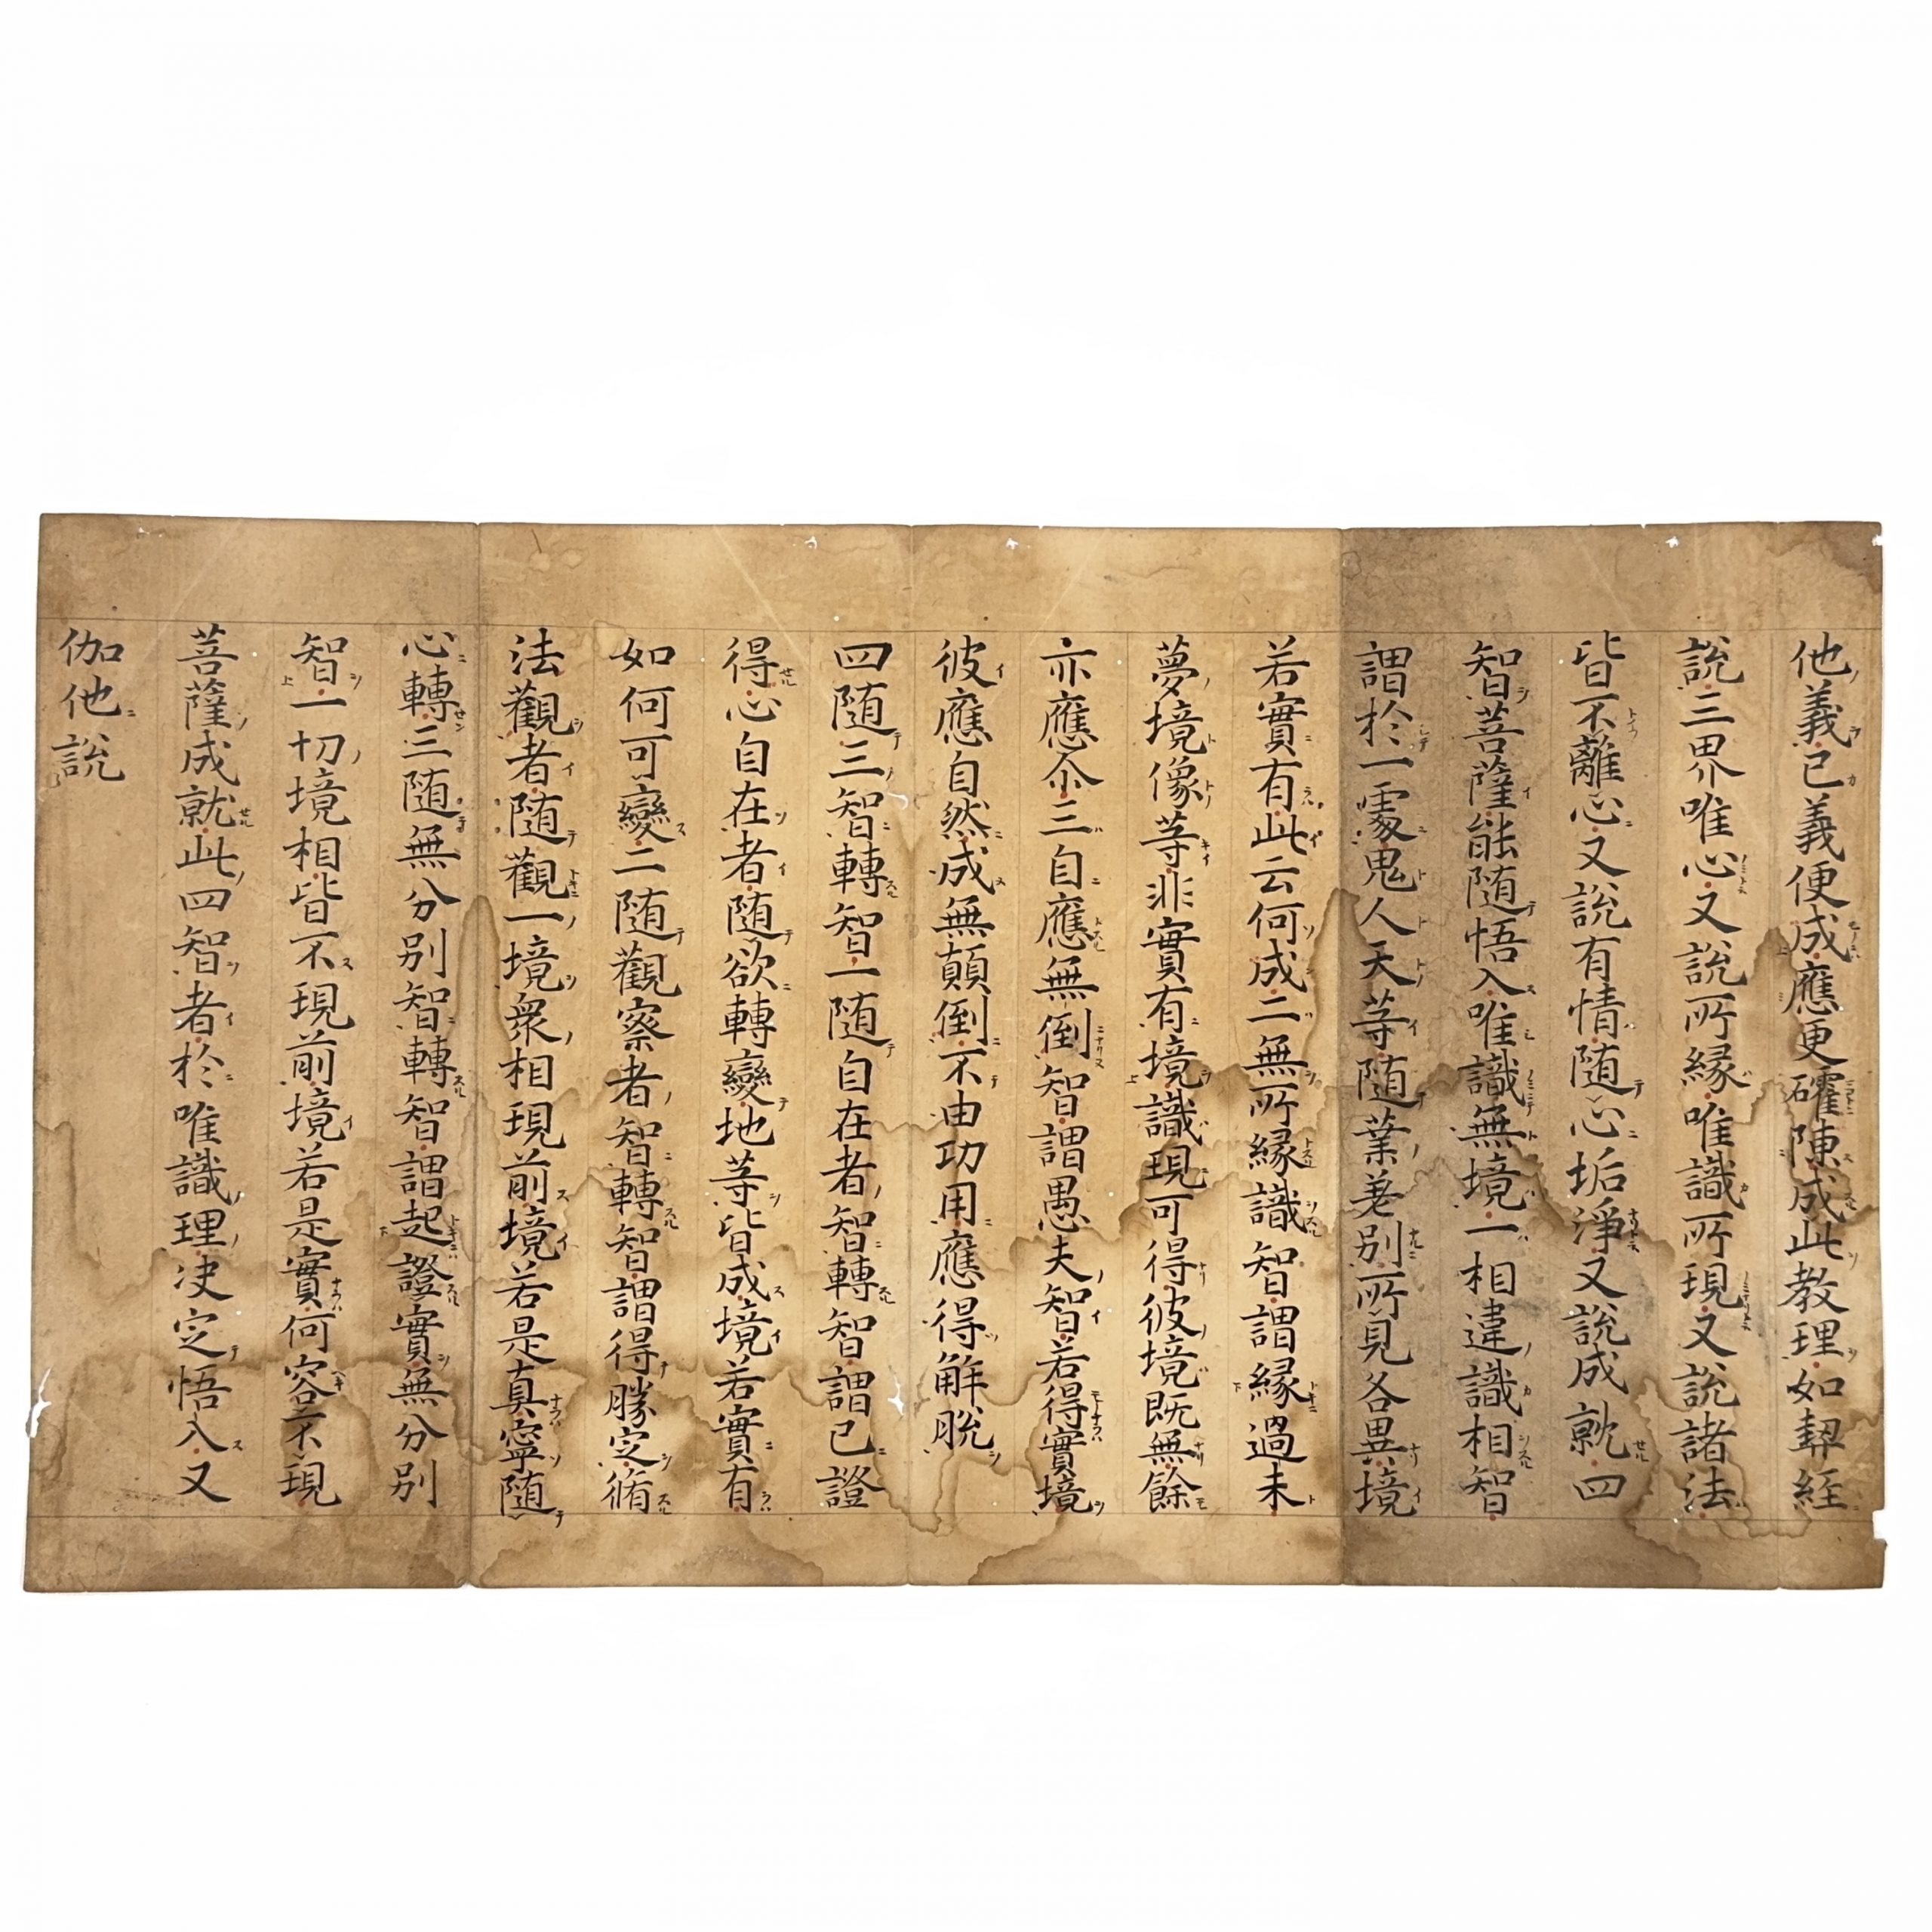 他義己義便成應更礭陳成此教理如契經
說三界唯心又說所縁唯識所現又說諸法
皆不離心又說有情随心垢淨又說成就四
智菩薩能随悟入唯識無境一相違識相智
謂於一處鬼人天等随業差別所見各異境
若實有此云何成二無所縁識智謂縁過未
夢境像等非實有境識現可得彼境既無餘
亦應尒三自應無倒智謂愚夫智若得實境
彼應自然成無顛倒不由功用應得解脫
四随三智轉智一随自在者智轉智謂已證
得心自在者随欲轉變地等皆成境若實有
如何可變二随觀察者智轉智謂得勝定脩
法觀者随觀一境衆相現前境若是真寧随
心轉三随無分別智轉智謂起證實無分別
智一切境相皆不現前境若是實何容不現
菩薩成就此四智者於唯識理决定悟入又
伽他說